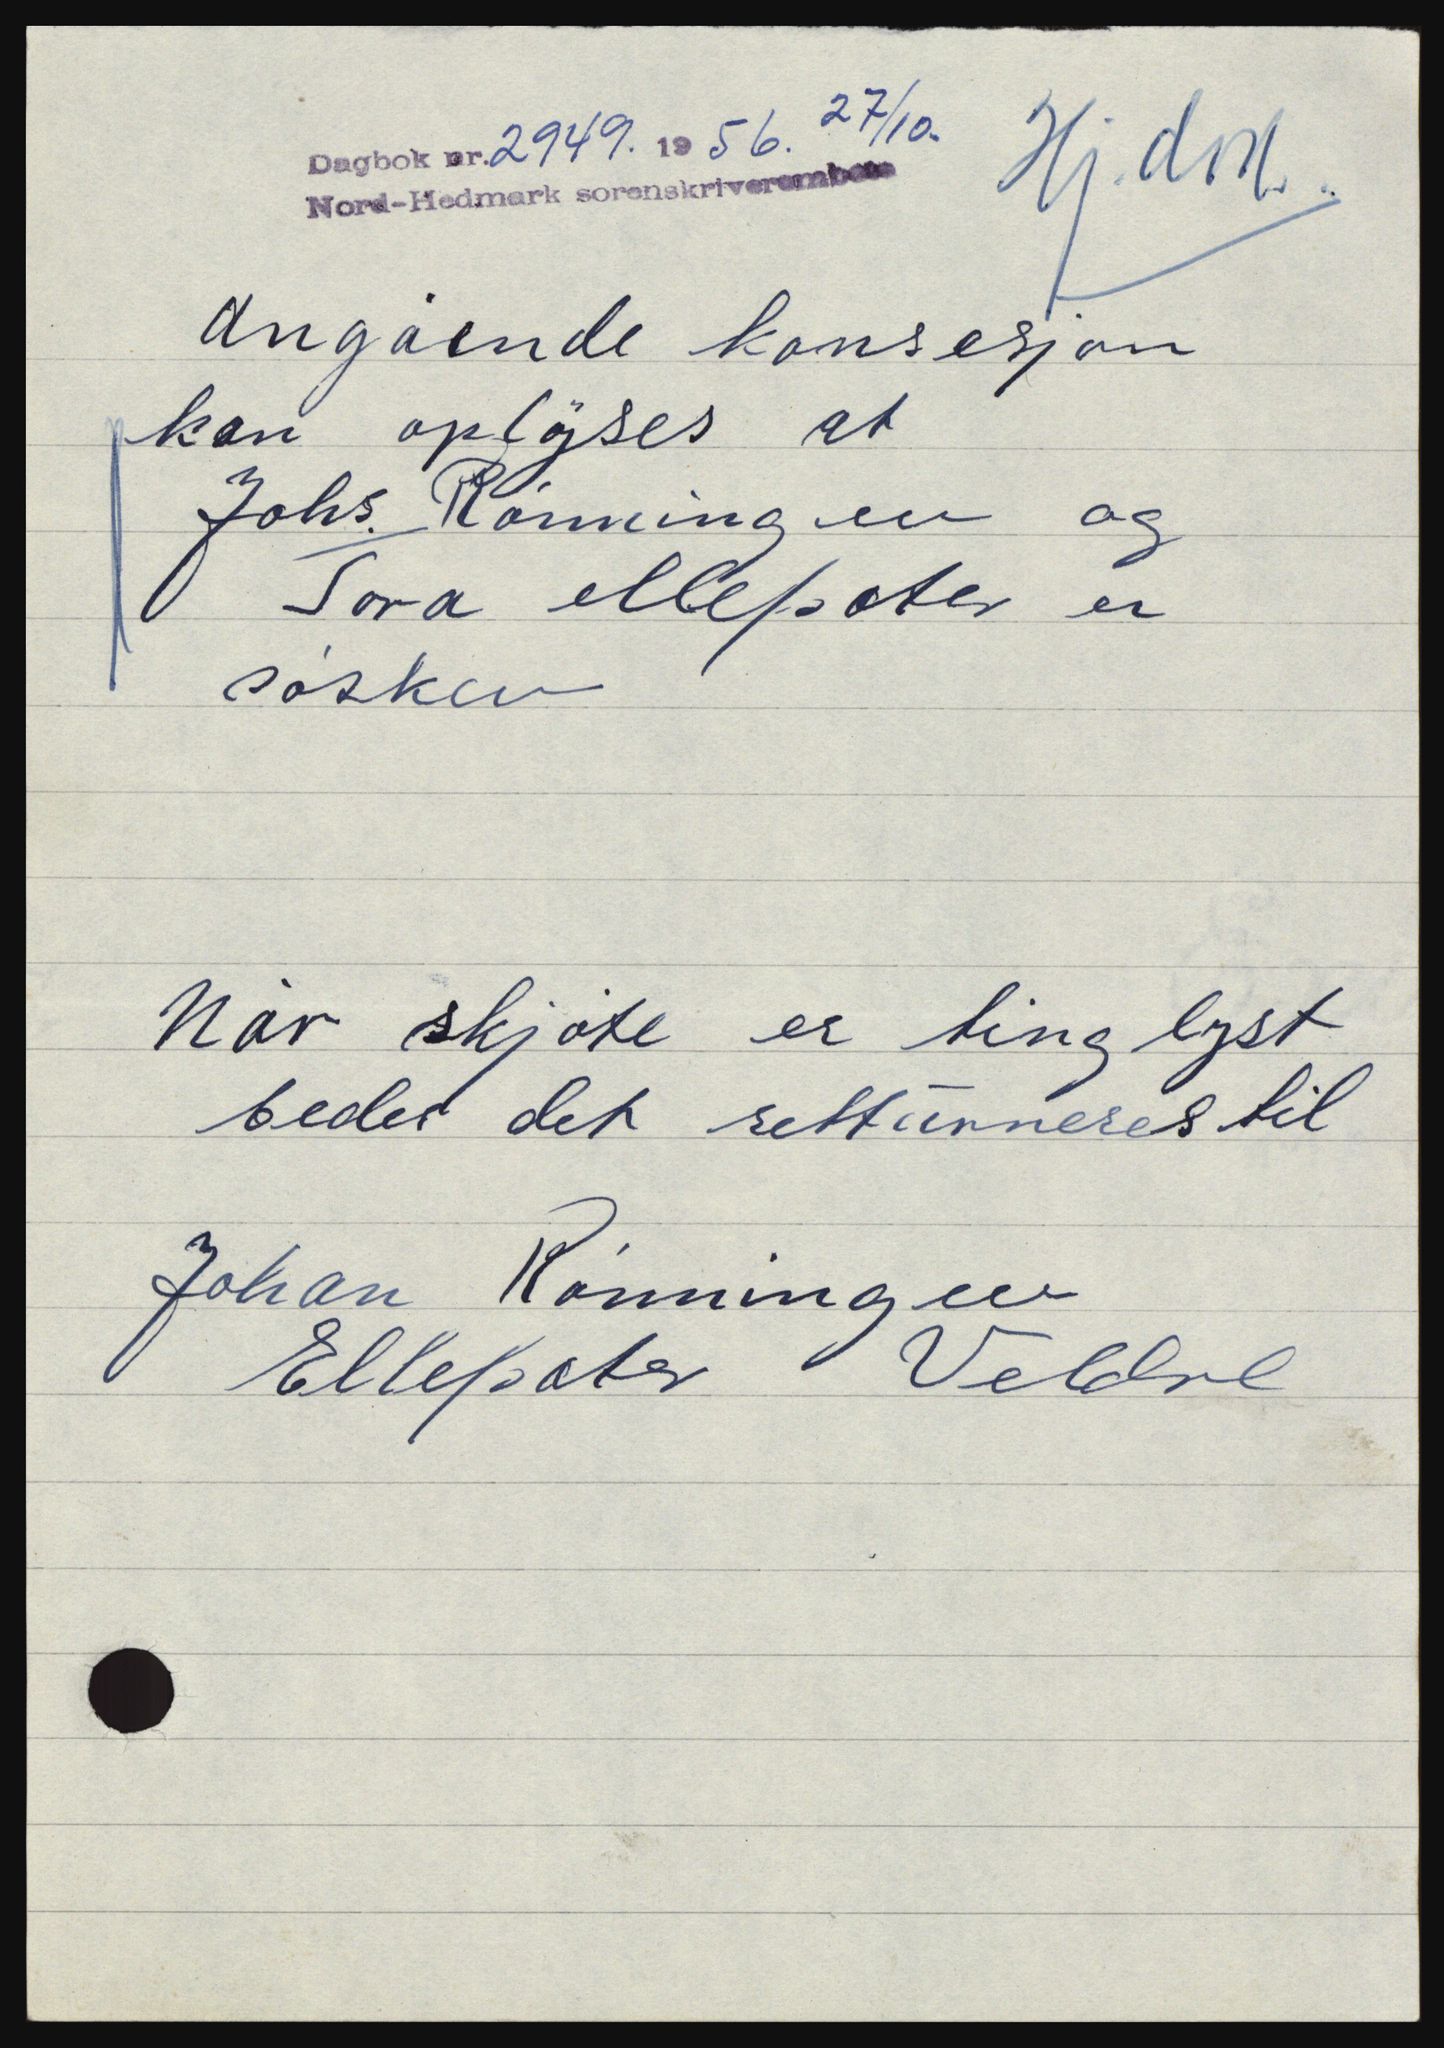 Dagbok nr. 2949. 19 56. 27/10.
Nord-Hedmark sorenskriverembete
Angående konsesjon
kan oplyses at
Johs. Rónningen og
Tora ellepoter er
sósken
Når skjóte er tinglyst
bedes det retturneres til
Johan Rónningen
Ellepoter Veldre